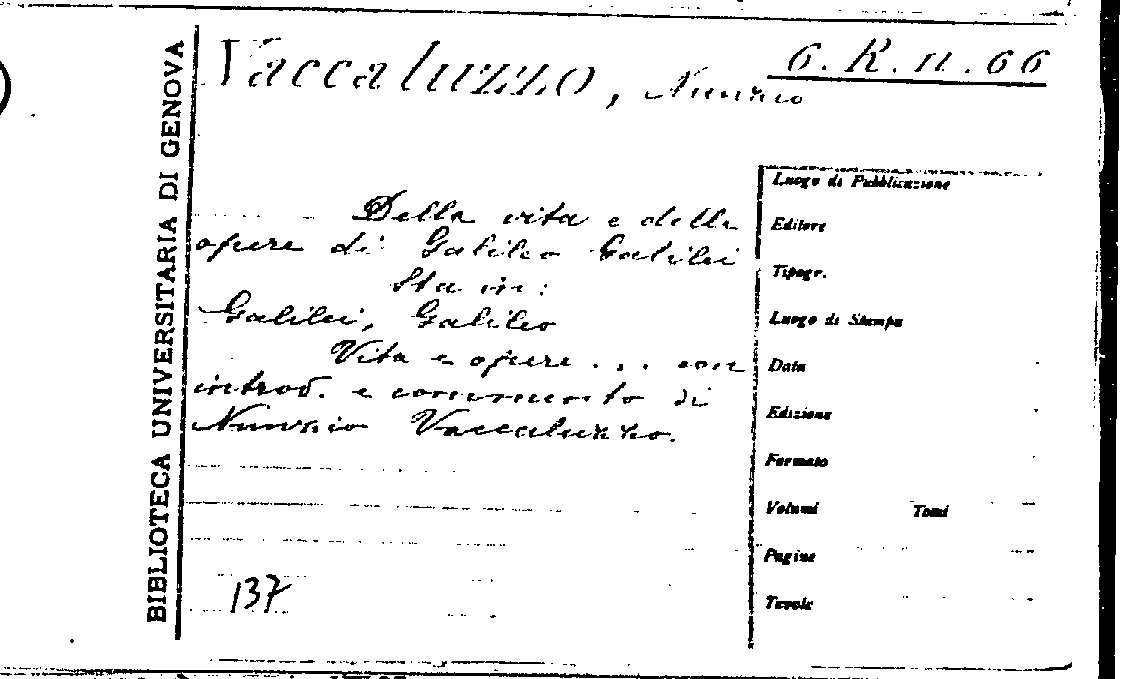 BIBLIOTECA UNIVERSITARIA DI GENOVA
Vaccaluzzo, Nunzio
6. R. II. 66
Della vita e delle
opere di Galileo Galilei
Sta in:
Galilei, Galileo
Vita e opere ... con
introd. e commento di
Nunzio Vaccaluzzo.
137
Luogo di Pubblicazione
Editore
Tipogr.
Luogo di Stampa
Data
Edizione
Formato
Volumi Tomi
Pagine
Tavole